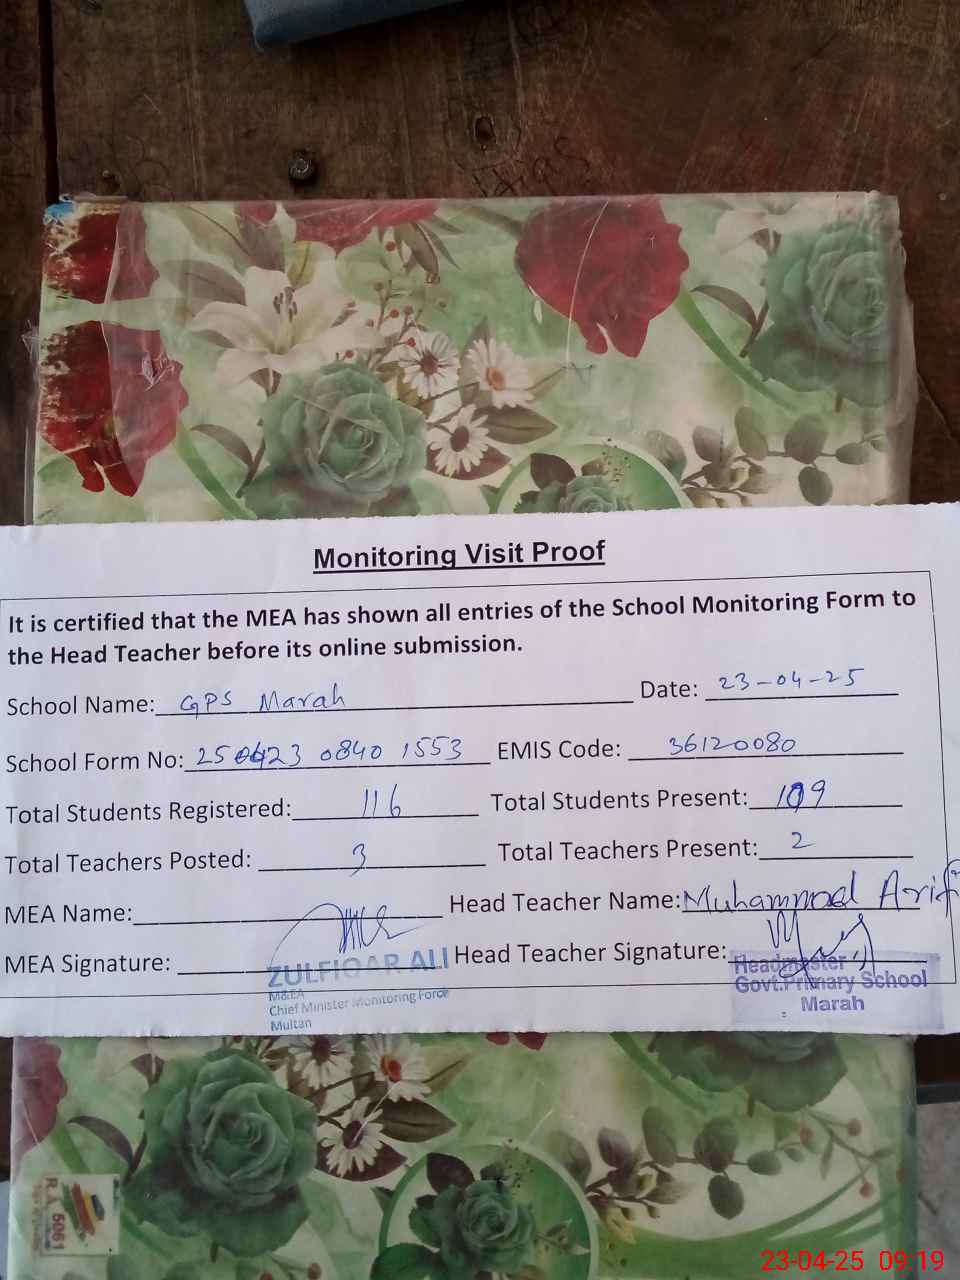 Monitoring Visit Proof
It is certified that the MEA has shown all entries of the School Monitoring Form to
the Head Teacher before its online submission.
School Name: GPS Marah Date: 23-04-25
School Form No: 250423 0840 1553 EMIS Code: 36120080
Total Students Registered: 116 Total Students Present: 109
Total Teachers Posted: 3 Total Teachers Present: 2
MEA Name: Head Teacher Name: Muhammad Arif
MEA Signature: Head Teacher Signature:
ZULFIQAR ALI
M&EA
Chief Minister Monitoring Force
Multan
Headmaster
Govt.Primary School
Marah
R.A 5061
23-04-25 09:19